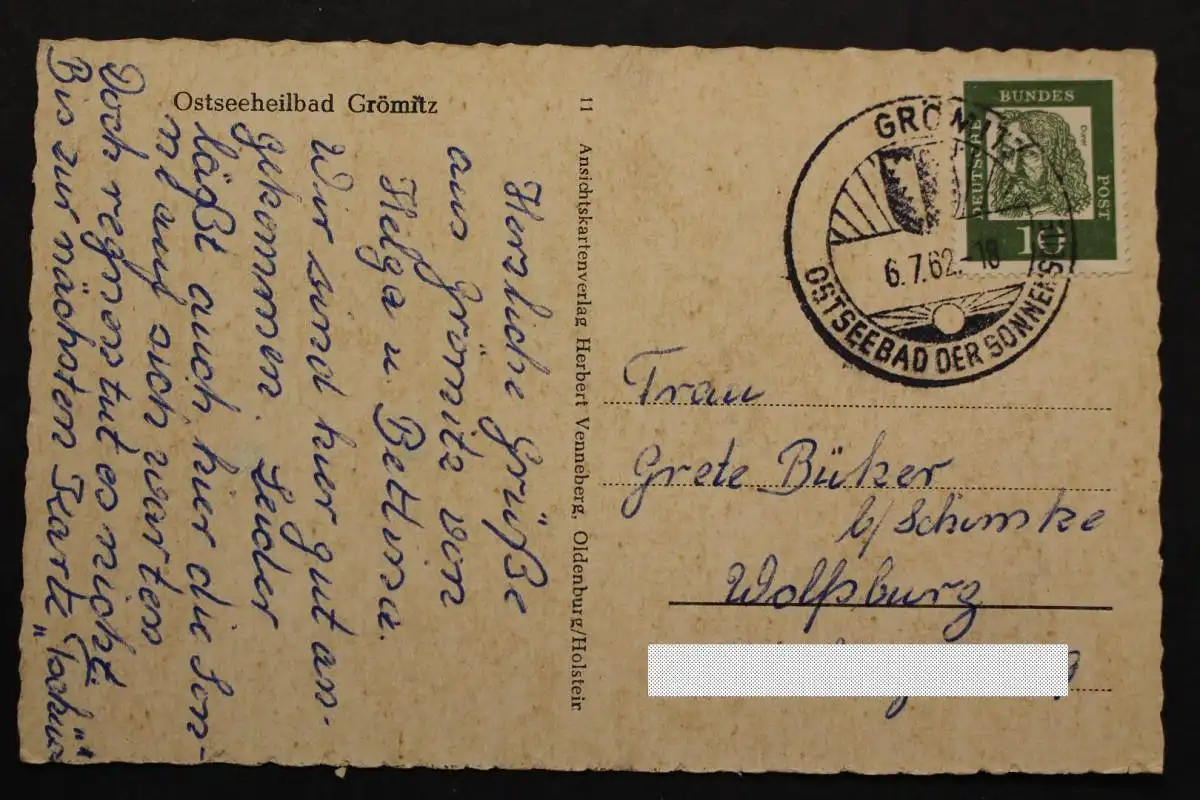 Ostseeheilbad Grömitz
Herzliche Grüße
aus Grömitz von
Helga u. Bettina.
Wir sind hier gut an-
gekommen. Leider
läßt auch hier die Son-
ne auf sich warten
Doch regnen tut es nicht.
Bis zur nächsten Karte "
11
Ansichtskartenverlag Herbert Venneberg, Oldenburg/Holstein
GRÖMITZ
6.7.62.-18
OSTSEEBAD DER SONNENS
DEUTSCHE
BUNDES
POST
Dürer
10
Frau
Grete Büker
b/ Schimke
Wolfsburg